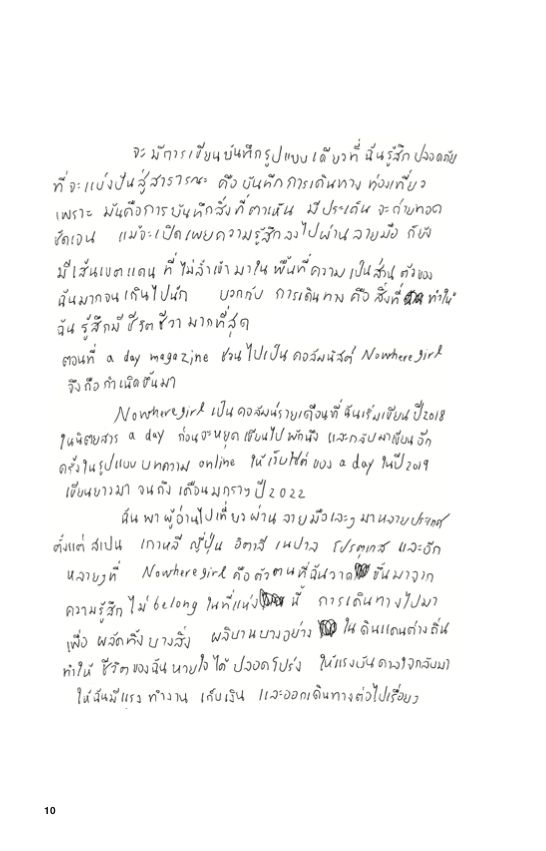 จะมีการเขียนบันทึกรูปแบบเดียวที่ ฉันรู้สึกปลอดภัย
ที่จะแบ่งปันสู่สาธารณะ คือ บันทึกการเดินทาง ท่องเที่ยว
เพราะ มันคือการบันทึกสิ่งที่ตาเห็น มีประเด็น จะถ่ายทอด
ชัดเจน แม้จะเปิดเผยความรู้สึกลงไปผ่านลายมือ ก็ยัง
มีเส้นเขตแดน ที่ไม่ล้ำเข้ามาใน พื้นที่ความเป็นส่วนตัวของ
ฉันมากจนเกินไปนัก บวกกับ การเดินทาง คือ สิ่งที่ ทำให้
ฉัน รู้สึกมีชีวิตชีวา มากที่สุด
ตอนที่ a day magazine ชวนไปเป็น คอลัมนิสต์ Nowhere girl
จึงถือกำเนิดขึ้นมา
Nowhere girl เป็นคอลัมน์รายเดือนที่ฉันเริ่มเขียน ปี 2018
ในนิตยสาร a day ก่อนจะหยุดเขียนไปพักนึง และกลับมาเขียนอีก
ครั้งในรูปแบบ บทความ online ให้เว็บไซต์ ของ a day ในปี 2019
เขียนยาวมา จนถึง เดือนมกราฯ ปี 2022
ฉัน พา ผู้อ่านไปเที่ยวผ่าน ลายมือเละๆ มาหลายประเทศ
ตั้งแต่ สเปน เกาหลี ญี่ปุ่น อิตาลี เนปาล โปรตุเกส และอีก
หลายๆที่ Nowhere girl คือ ตัวตนที่ฉันวาด ขึ้นมาจาก
ความรู้สึก ไม่ belong ในที่แห่ง นี้ การเดินทางไปมา
เพื่อ ผลัดทิ้งบางสิ่ง ผลิบานบางอย่าง ในดินแดนต่างถิ่น
ทำให้ ชีวิตของฉันหายใจได้ ปลอดโปร่ง ให้แรงบันดาลใจกลับมา
ให้ฉันมีแรง ทำงาน เก็บเงิน และออกเดินทางต่อไปเรื่อยๆ
10